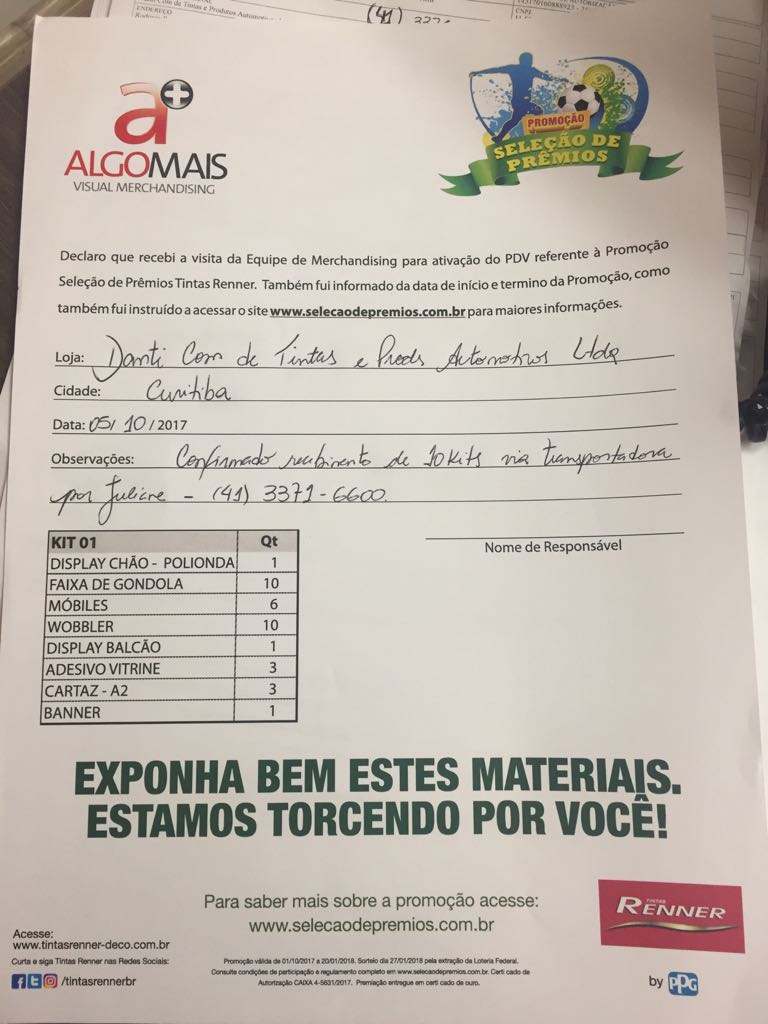 Com de Tintas e Produtos Automo
ENDEREÇO
(41) 337
CNPJ
a+
ALGOMAIS
VISUAL MERCHANDISING
PROMOÇÃO
SELEÇÃO DE
PRÊMIOS
Declaro que recebi a visita da Equipe de Merchandising para ativação do PDV referente à Promoção
Seleção de Prêmios Tintas Renner. Também fui informado da data de início e termino da Promoção, como
também fui instruído a acessar o site www.selecaodepremios.com.br para maiores informações.
Loja: Danti Com de Tintas e Prods Automotivos Ltda
Cidade: Curitiba
Data: 05/ 10 / 2017
Observações: Confirmado recebimento de 10 Kits via transportadora
por Juliane - (41) 3371-6600.
Nome de Responsável
KIT 01 Qt
DISPLAY CHÃO - POLIONDA 1
FAIXA DE GONDOLA 10
MÓBILES 6
WOBBLER 10
DISPLAY BALCÃO 1
ADESIVO VITRINE 3
CARTAZ - A2 3
BANNER 1
EXPONHA BEM ESTES MATERIAIS.
ESTAMOS TORCENDO POR VOCÊ!
Para saber mais sobre a promoção acesse:
www.selecaodepremios.com.br
TINTAS
RENNER
by PPG
Acesse:
www.tintasrenner-deco.com.br
Curta e siga Tintas Renner nas Redes Sociais:
/tintasrennerbr
Promoção válida de 01/10/2017 a 20/01/2018. Sorteio dia 27/01/2018 pela extração da Loteria Federal.
Consulte condições de participação e regulamento completo em www.selecaodepremios.com.br. Certi cado de
Autorização CAIXA 4-5631/2017. Premiação entregue em certi cado de ouro.